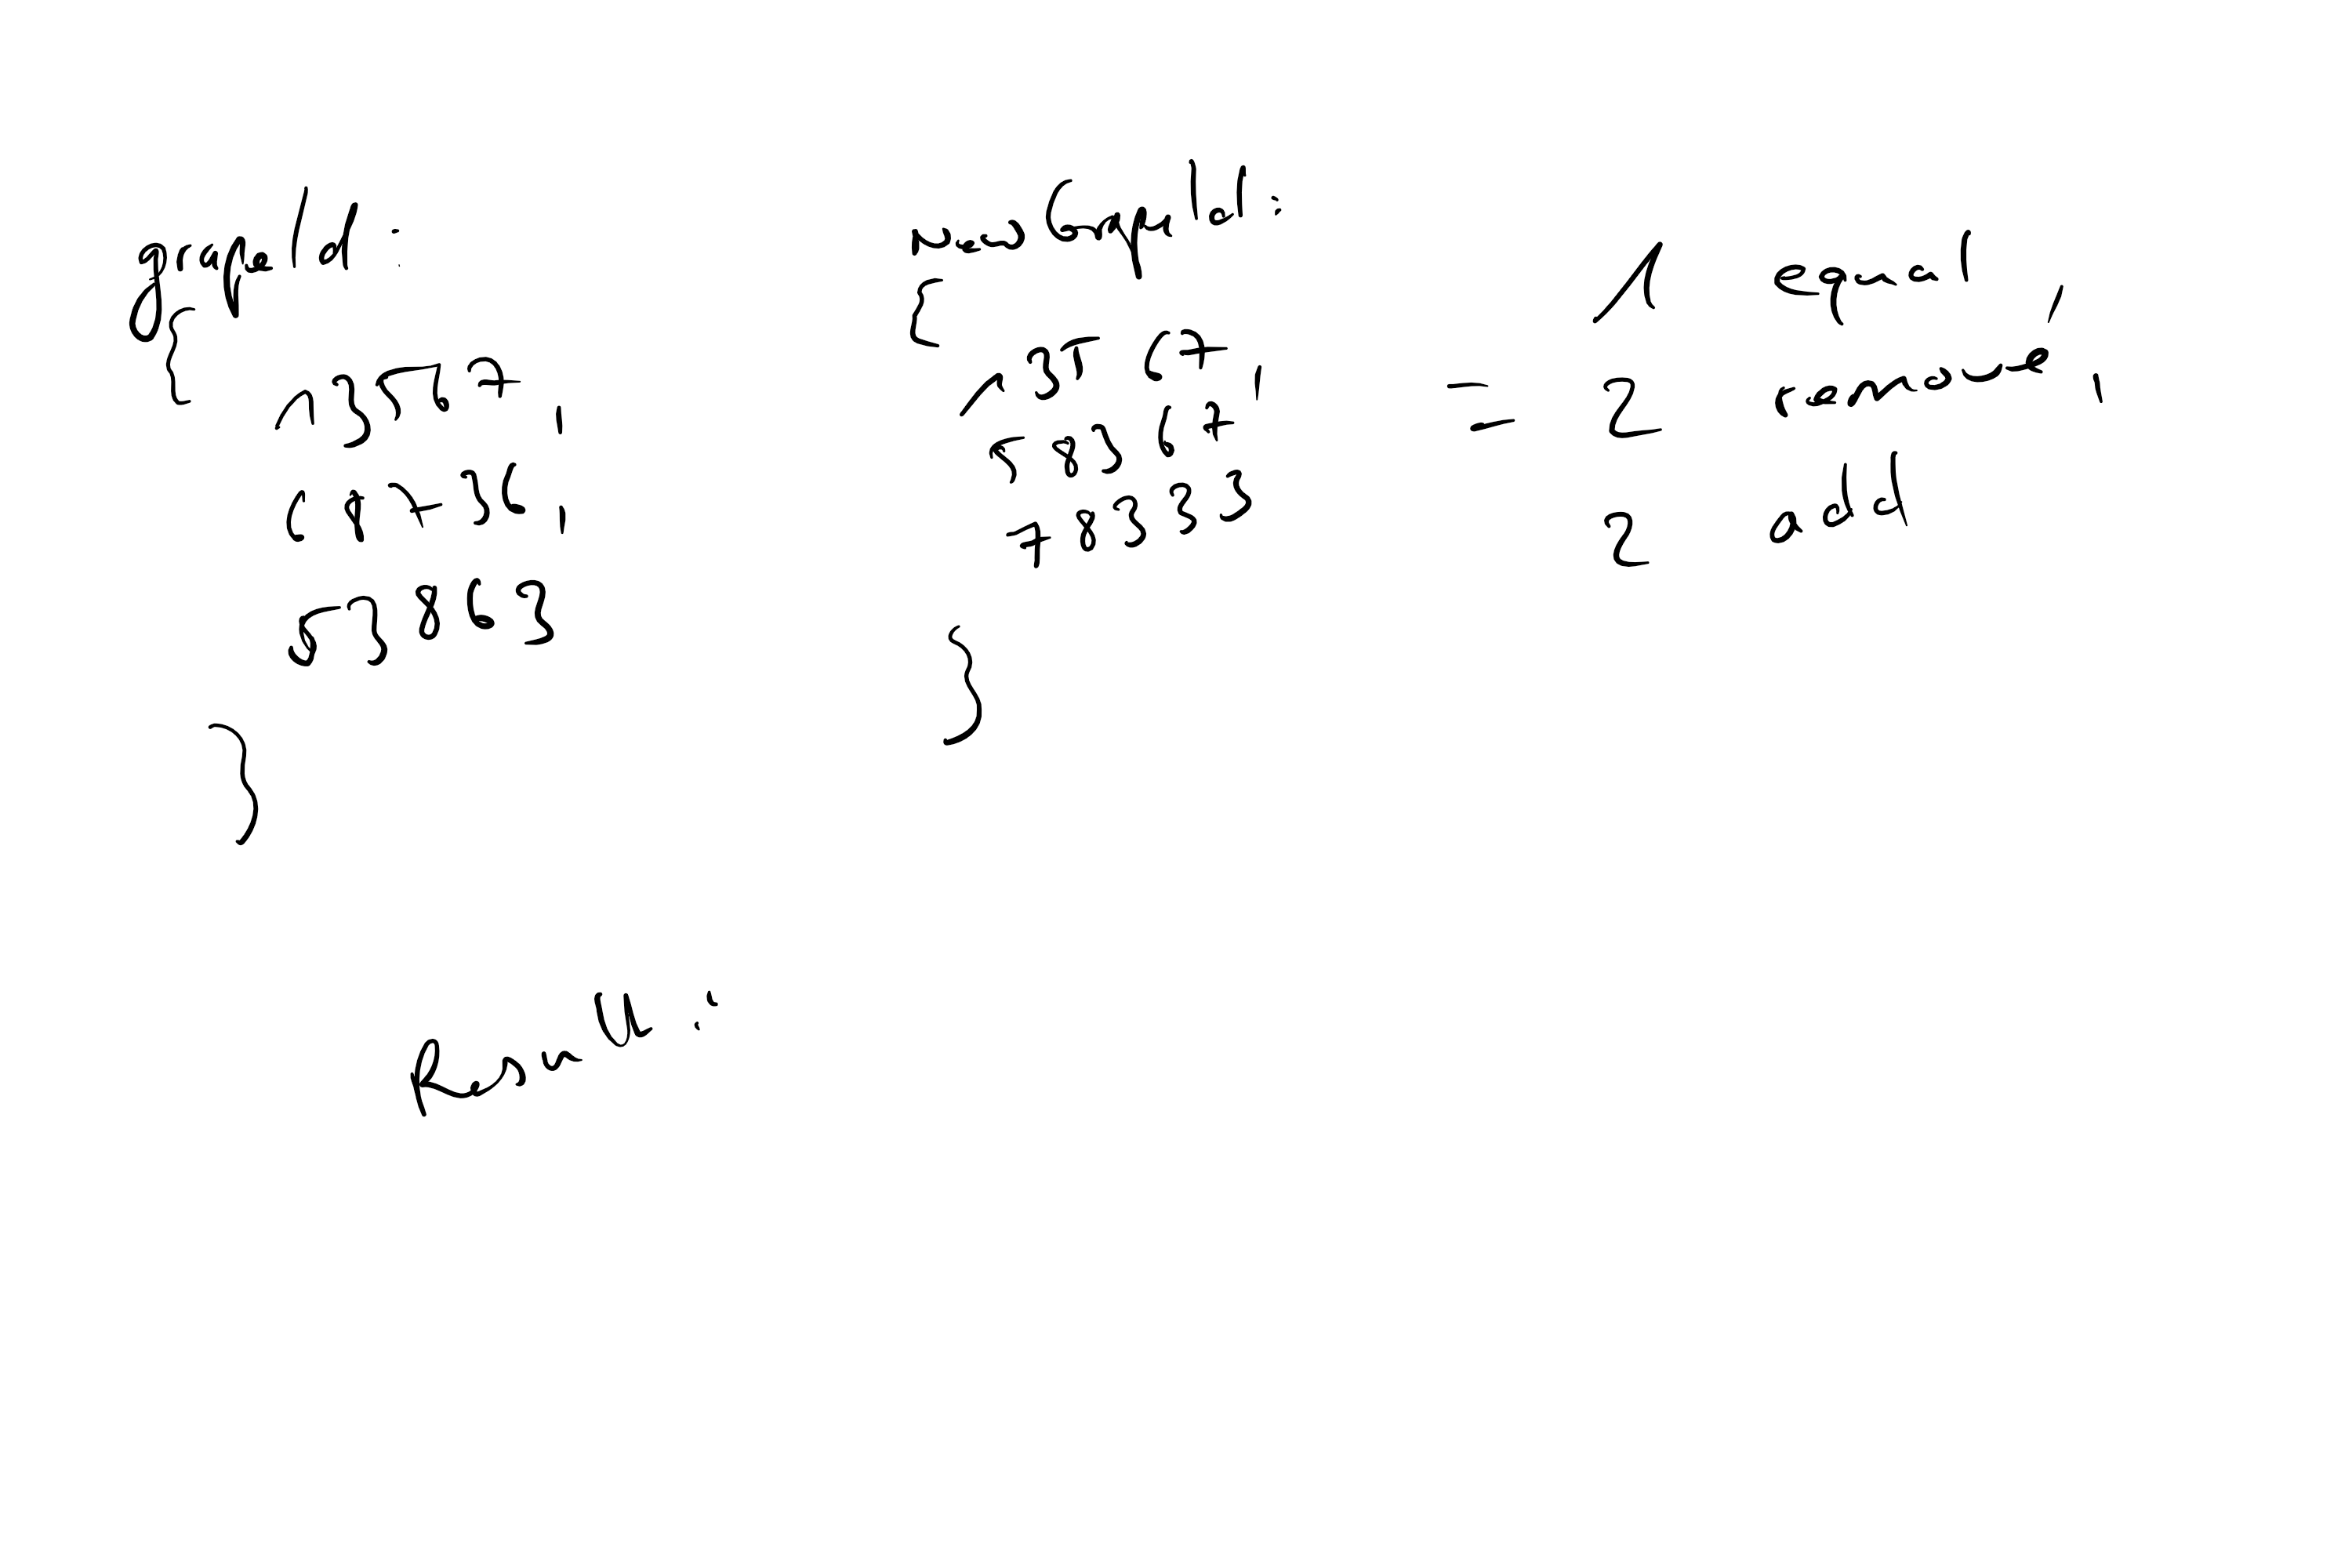 grapeId:
{
13567,
68736,
53863
}
newGrapeId:
{
13567,
58367
78333
}
= 1 equal,
2 remove,
2 add
Result: